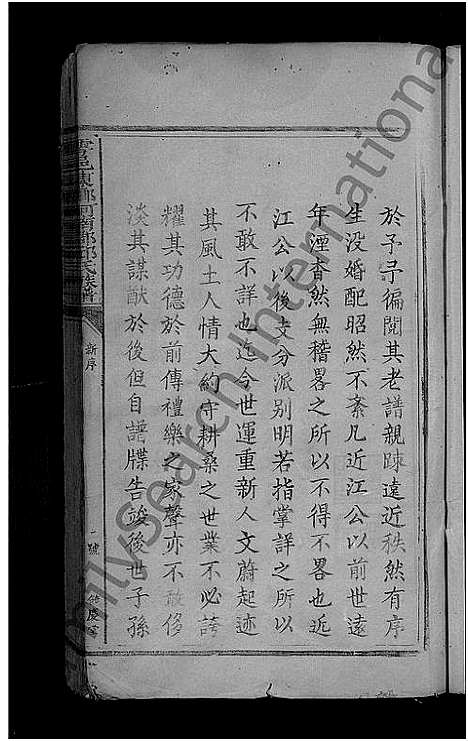 於予予徧閱其老譜親踈遠近秩然有序
生没婚配昭然不紊凡近江公以前世遠
年湮杳然無稽畧之所以不得不畧也近
江公以後支分派别明若指掌詳之所以
不敢不詳也迄今世運重新人文蔚起迹
其風土人情大約守耕桑之世業不必誇
耀其功德於前傳禮樂之家聲亦不敢侈
淡其謀猷於後但自譜牒告竣後世子孫
雩邑東鄉河南郡邱氏族譜
新序
一號
FamilySearch International